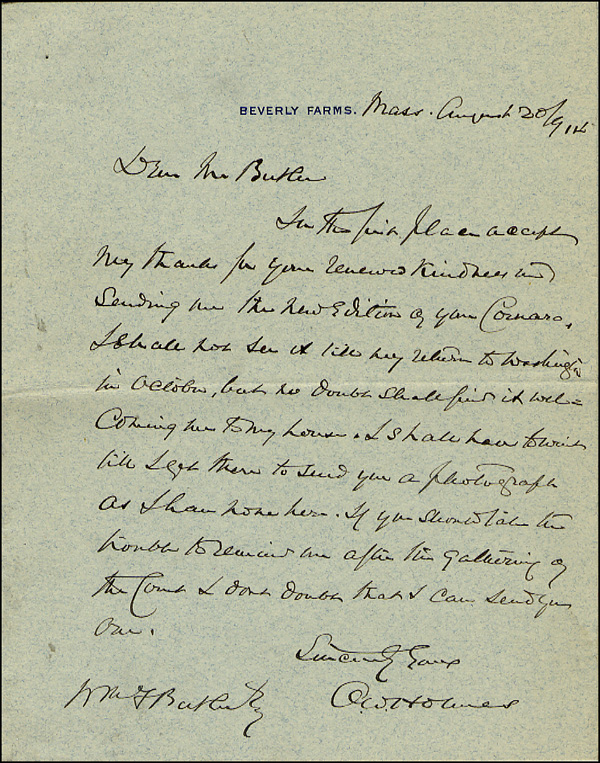 BEVERLY FARMS. Mass. August 20/914
Dear Mr Butler
In the first place accept
my thanks for your renewed kindness and
sending me the new edition of your Cornaro.
I shall not see it till my return to Washington
in October, but no doubt shall find it wel=
coming me to my house. I shall have to wait
till I get there to send you a photograph
as I have none here. If you should take the
trouble to remind me after the gathering of
the Court I dont doubt that I can send you
one.
Sincerely Yours
O.W. Holmes
Wm F Butler Esq